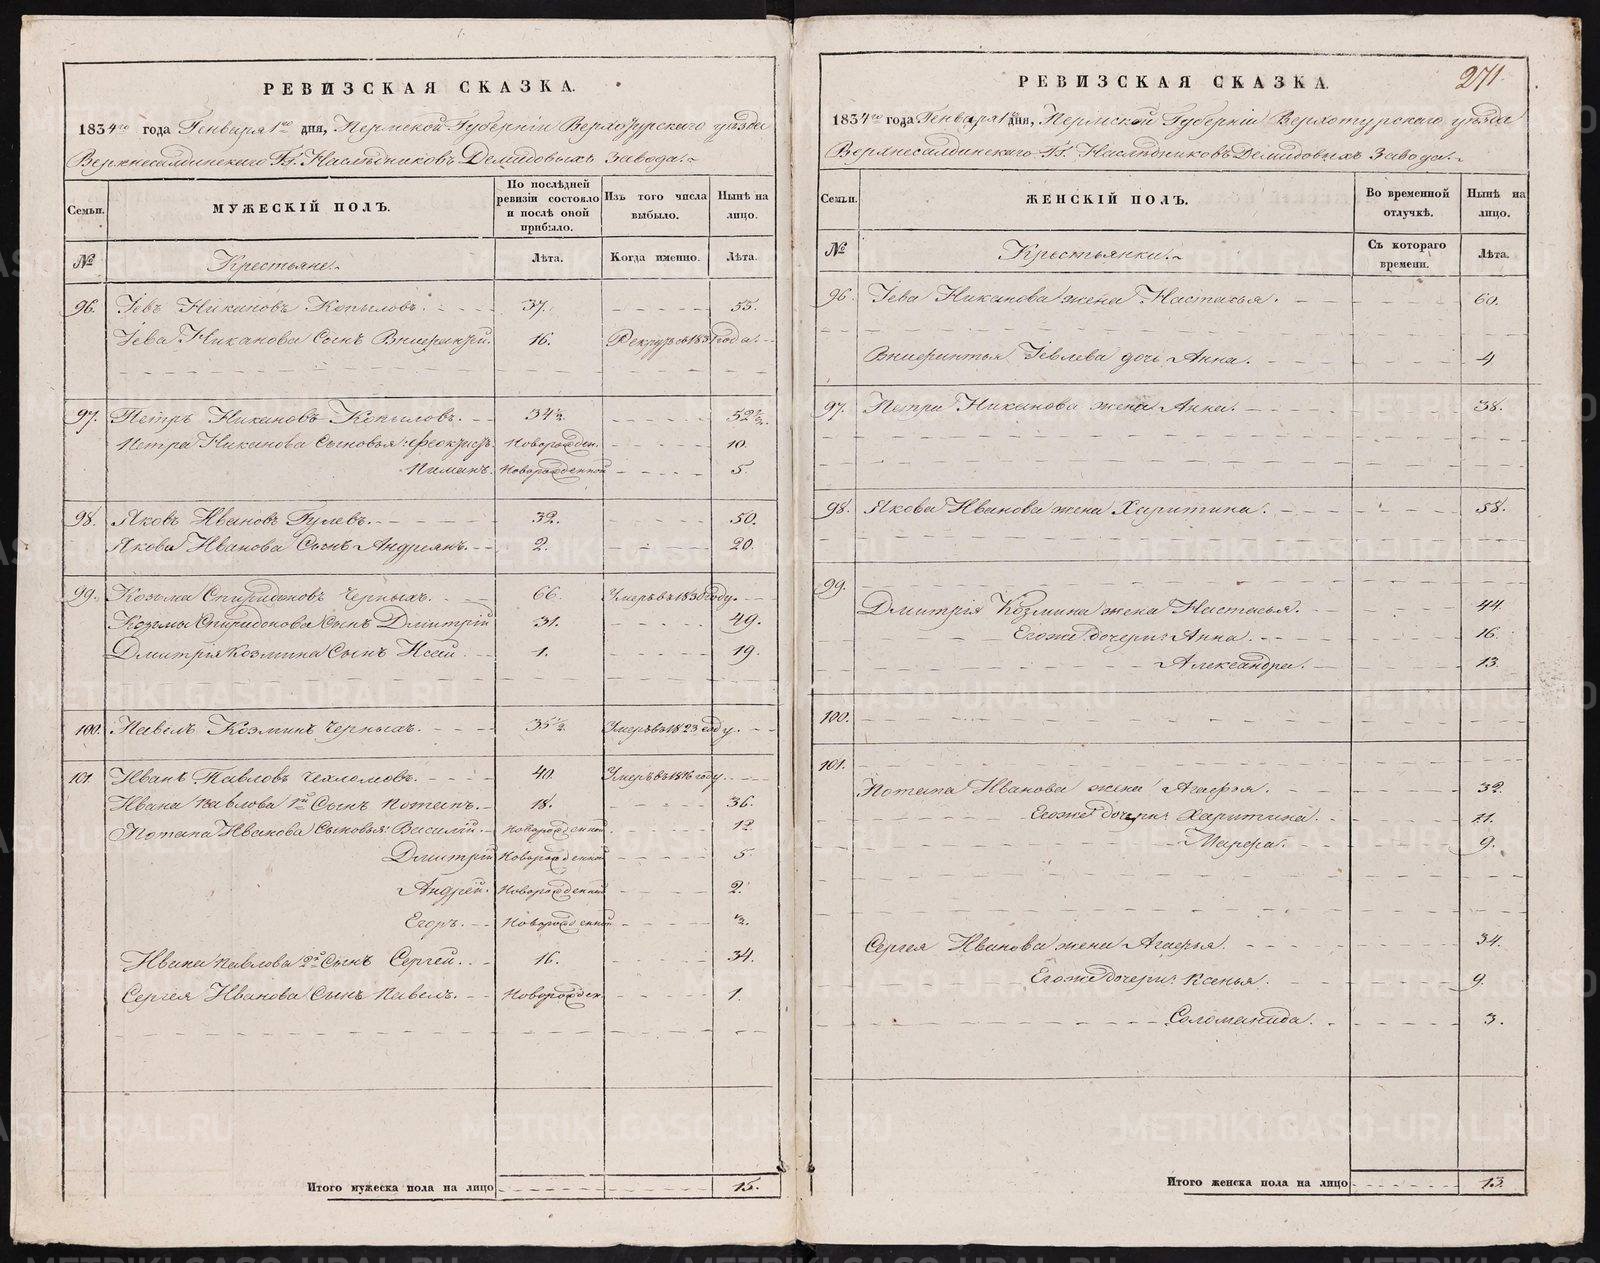 271.
РЕВИЗСКАЯ СКАЗКА.
1834го года Генваря 1го дня, Пермской Губерніи Верхотурскаго уѣзда
Верхнесалдинскаго Гг. Наслѣдниковъ Демидовыхъ Завода.
Семьи.
МУЖЕСКІЙ ПОЛЪ.
По послѣдней ревизіи состояло и послѣ оной прибыло.
Изъ того числа выбыло.
Нынѣ на лицо.
№
Крестьяне.
Лѣта.
Когда именно.
Лѣта.
96. Іевъ Никановъ Копыловъ. 37. 55.
Іева Никанова Сынъ 16. Рекрутъ 1831 года.
97. Петръ Никановъ Копыловъ. 34½. 52½.
Петра Никанова Сыновья: Феоктистъ. Новорожден. 10.
Пименъ. Новорожденной 5.
98. Яковъ Ивановъ Гулевъ. 32. 50.
Якова Иванова Сынъ Андреянъ. 2. 20.
99. Козьма Спиридоновъ Черныхъ. 66. Умеръ въ 1830 году.
Козьмы Спиридонова Сынъ Дмитрій 31. 49.
Дмитрія Козмина Сынъ Исай. 1. 19.
100. Павелъ Козминъ Черныхъ. 35½. Умеръ въ 1823 году.
101 Иванъ Павловъ Чехломовъ. 40. Умеръ въ 1816 году.
Ивана Павлова 1й Сынъ Потапъ. 18. 36.
Потапа Иванова Сыновья: Василій. Новорожденной 12
Дмитрій Новорожденной 5
Андрей. Новорожденной 2.
Егоръ. Новорожденной
Ивана Павлова 2й Сынъ Сергей. 16. 34.
Сергея Иванова Сынъ Павелъ. Новорожден. 1.
Итого мужеска пола на лицо 15.
РЕВИЗСКАЯ СКАЗКА.
1834го года Генваря 1го дня, Пермской Губерніи Верхотурскаго уѣзда
Верхнесалдинскаго Гг. Наслѣдниковъ Демидовыхъ Завода.
Семьи.
ЖЕНСКІЙ ПОЛЪ.
Во временной отлучкѣ.
Нынѣ на лицо.
№
Крестьянки.
Съ котораго времени.
Лѣта.
96. Іева Никанова жена Настасья. 60.
Іевлева дочь Анна. 4
97. Петра Никанова жена Анна. 38.
98. Якова Иванова жена Харитина. 58.
99.
Дмитрія Козмина жена Настасья. 44.
Егоже дочери: Анна. 16.
Александра. 13.
100.
101.
Потапа Иванова жена Агафья. 32.
Егоже дочери: Харитина. 11.
Марфа. 9.
Сергея Иванова жена Агафья. 34.
Егоже дочери: Ксенья. 9.
Соломанида. 3.
Итого женска пола на лицо 13.
METRIKI.GASO-URAL.RU